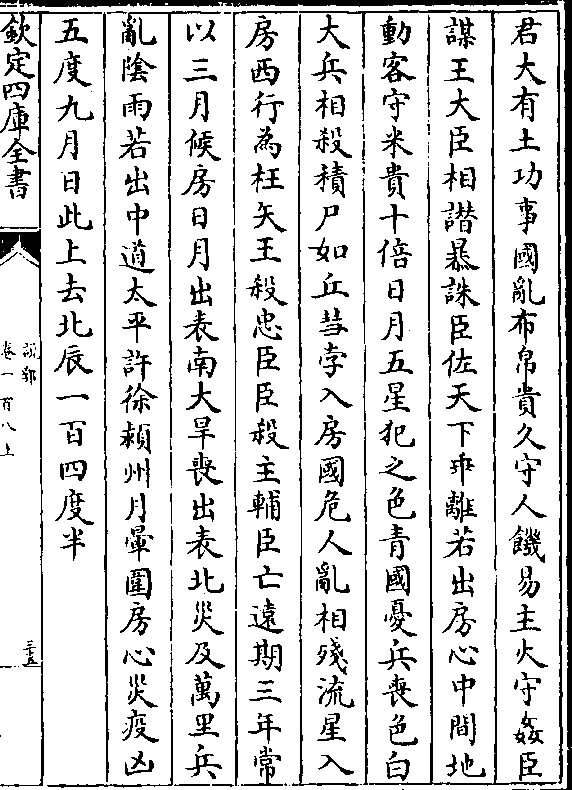 君大有土功事國亂布帛貴久守人饑易主火守姦臣
謀王大臣相譖暴誅臣佐天下乖離若出房心中間地
動客守米貴十倍日月五星犯之色青國憂兵喪色白
大兵相殺積尸如丘彗孛入房國危人亂相殘流星入
房西行為枉矢王殺忠臣臣殺主輔臣亡遠期三年常
以三月候房日月出表南大旱喪出表北災及萬里兵
亂陰雨若出中道太平許徐潁州月暈圍房心災疫凶
五度九月日此上去北辰一百四度半
欽定四庫全書
説郛
卷一百八上
三五